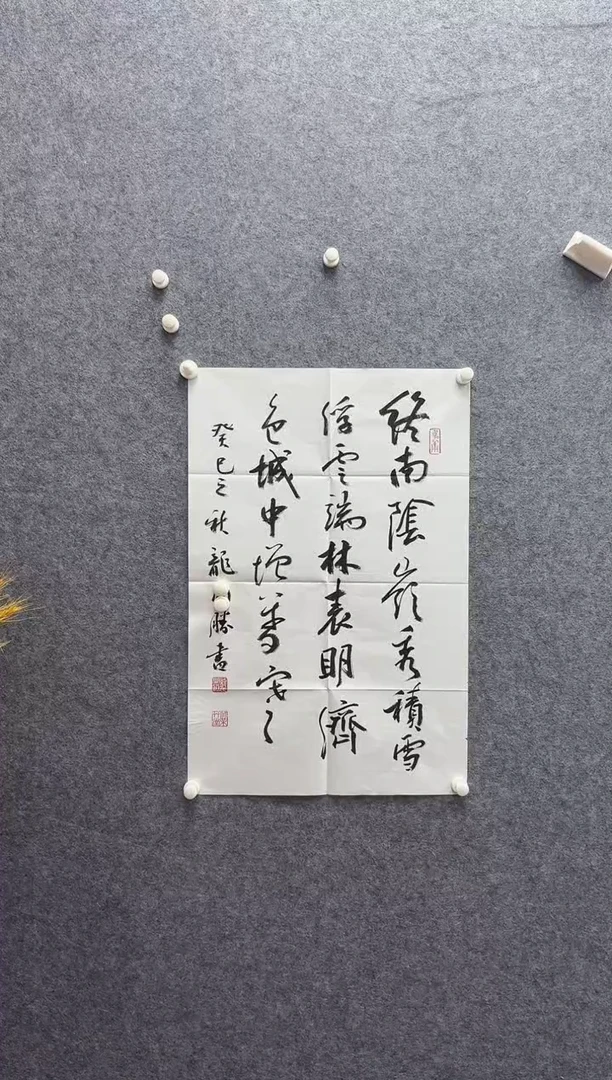 終南陰嶺秀積雪
浮雲端林表明濟
色城中增暮寒
癸巳之秋龍勝書